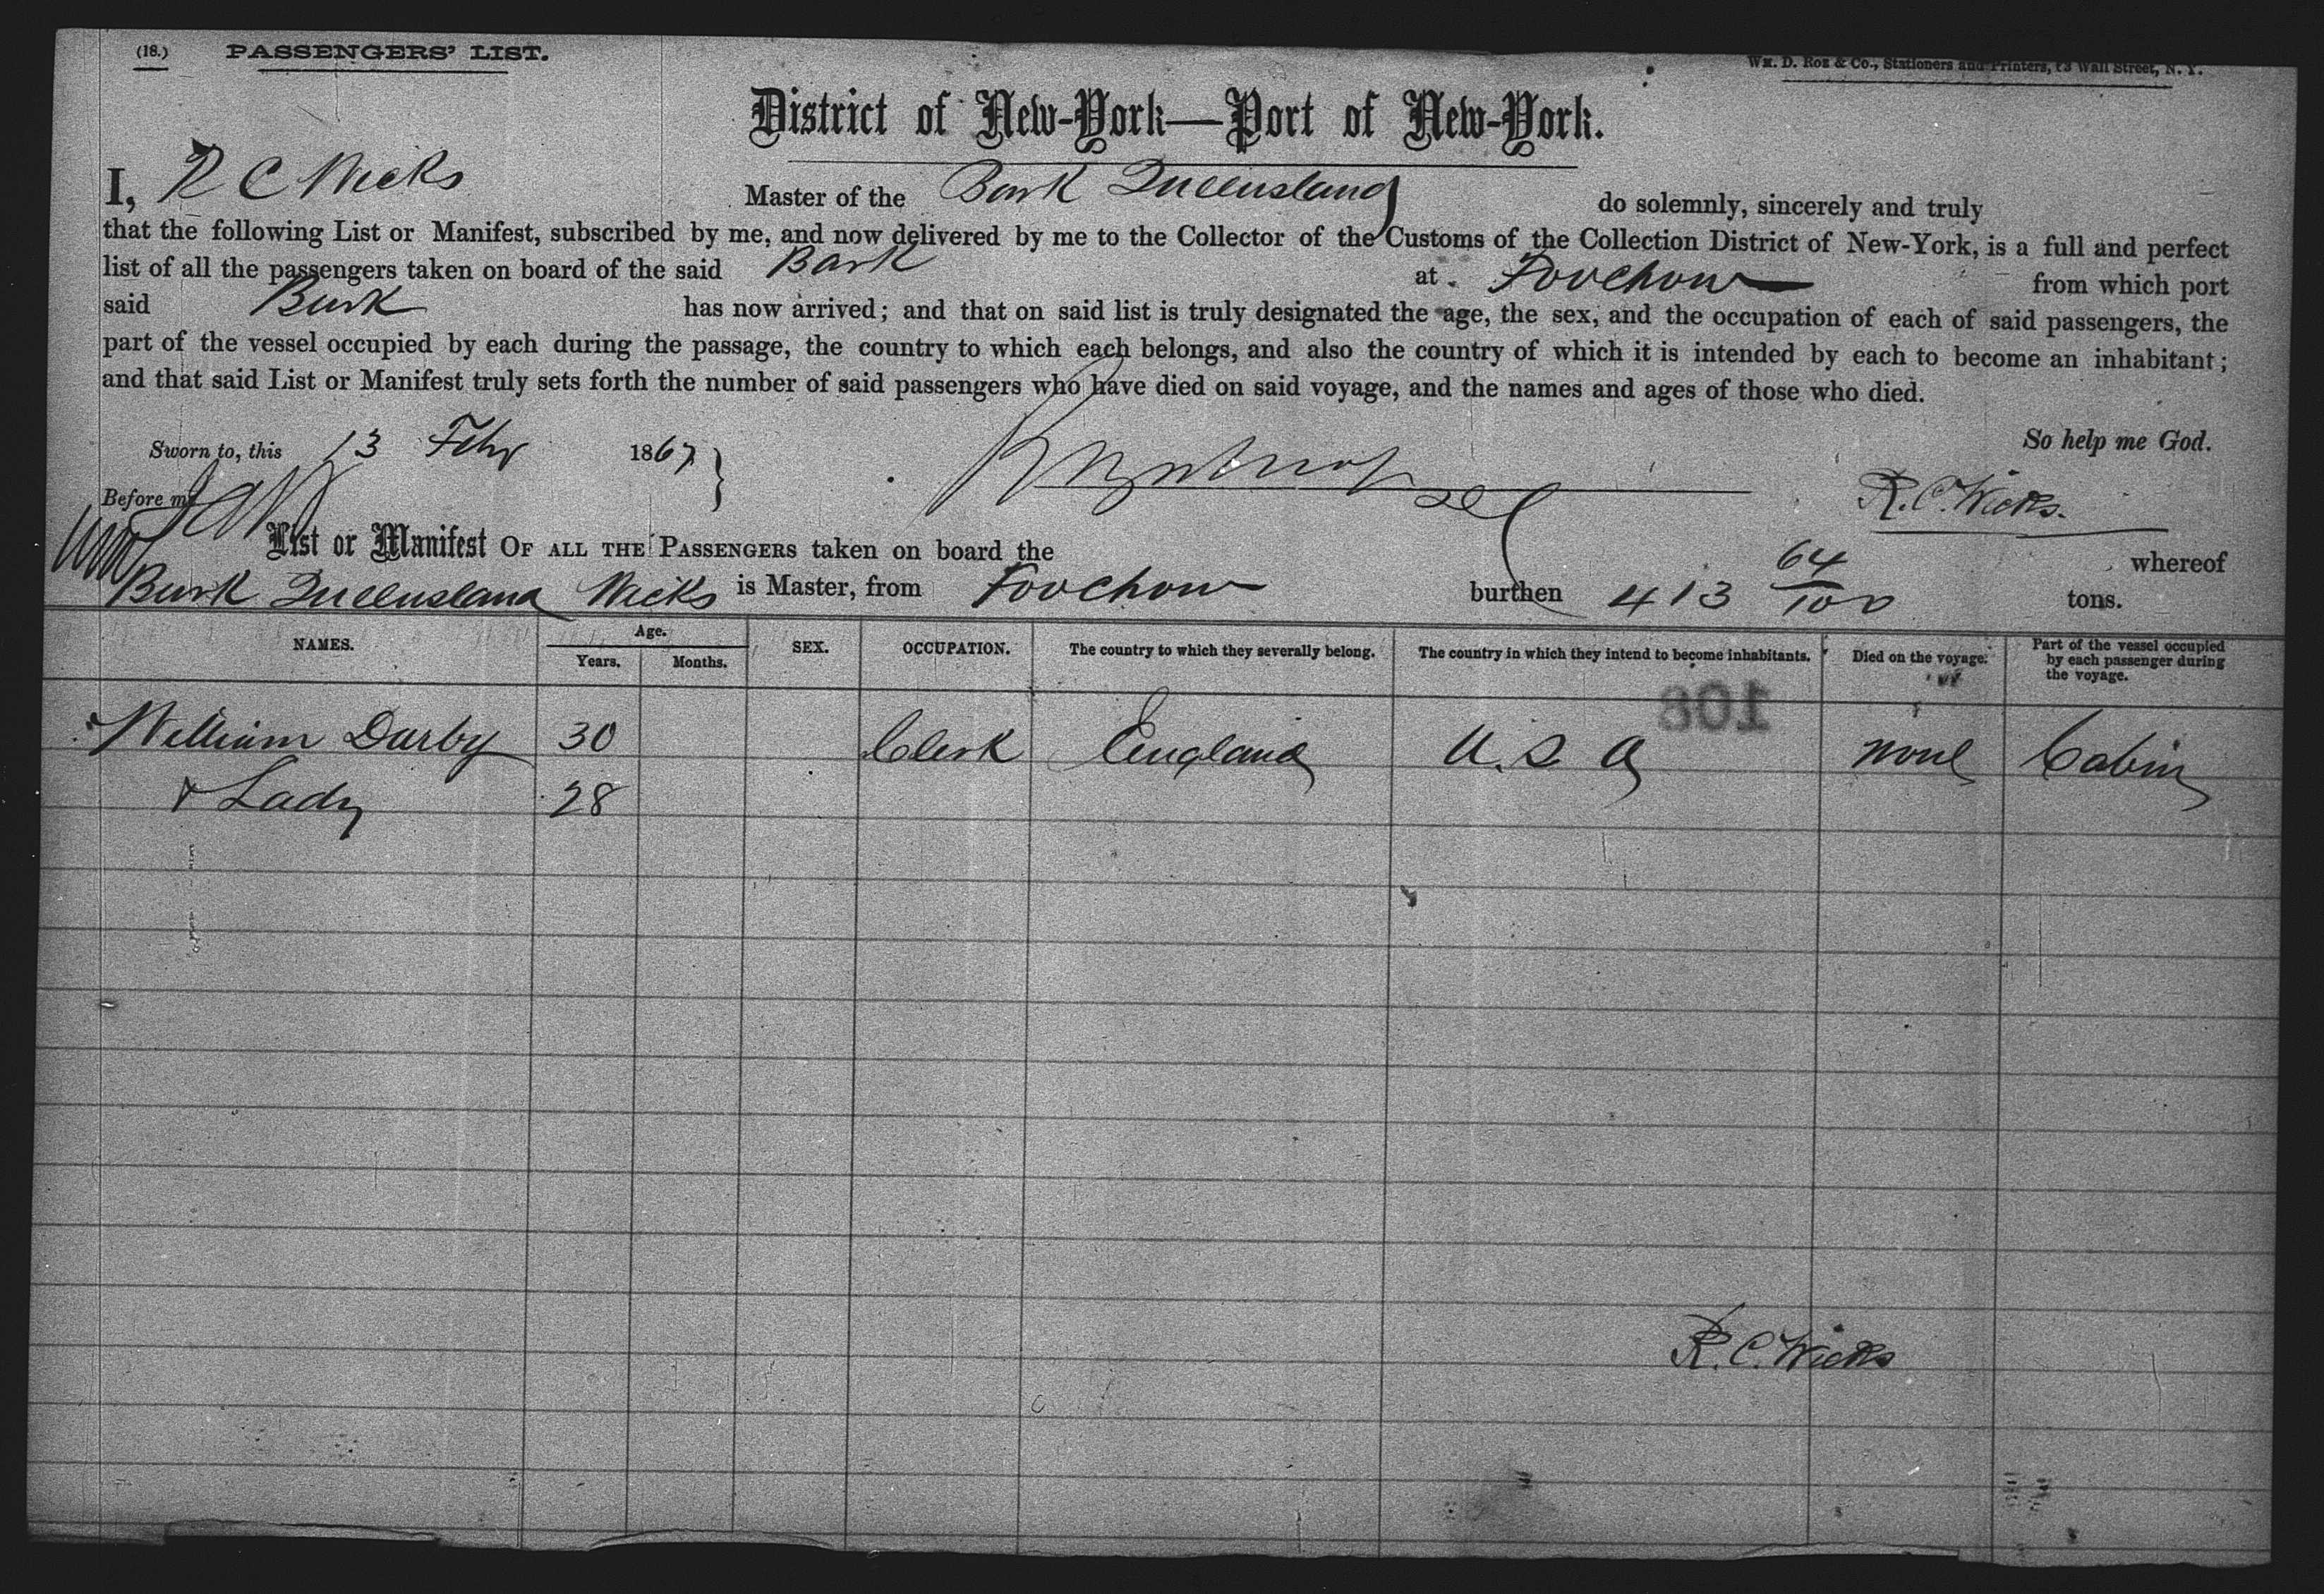 (18.) PASSENGERS' LIST.
Wm. D. Roe & Co., Stationers and Printers, Wall Street, N. Y.
District of New-York—Port of New-York.
I, R C Wicks Master of the Bark Queensland do solemnly, sincerely and truly
that the following List or Manifest, subscribed by me, and now delivered by me to the Collector of the Customs of the Collection District of New-York, is a full and perfect
list of all the passengers taken on board of the said Bark at Foochow from which port
said Bark has now arrived; and that on said list is truly designated the age, the sex, and the occupation of each of said passengers, the
part of the vessel occupied by each during the passage, the country to which each belongs, and also the country of which it is intended by each to become an inhabitant;
and that said List or Manifest truly sets forth the number of said passengers who have died on said voyage, and the names and ages of those who died.
So help me God.
Sworn to, this 13 Febr 1867
Before me
R. C. Wicks.
List or Manifest OF ALL THE PASSENGERS taken on board the whereof
Bark Queensland Wicks is Master, from Foochow burthen 413 64/100 tons.
NAMES. Age. Years. Months. SEX. OCCUPATION. The country to which they severally belong. The country in which they intend to become inhabitants. Died on the voyage. Part of the vessel occupied by each passenger during the voyage.
108
William Darby 30 Clerk England U. S. A none Cabin
& Lady 28
R. C. Wicks